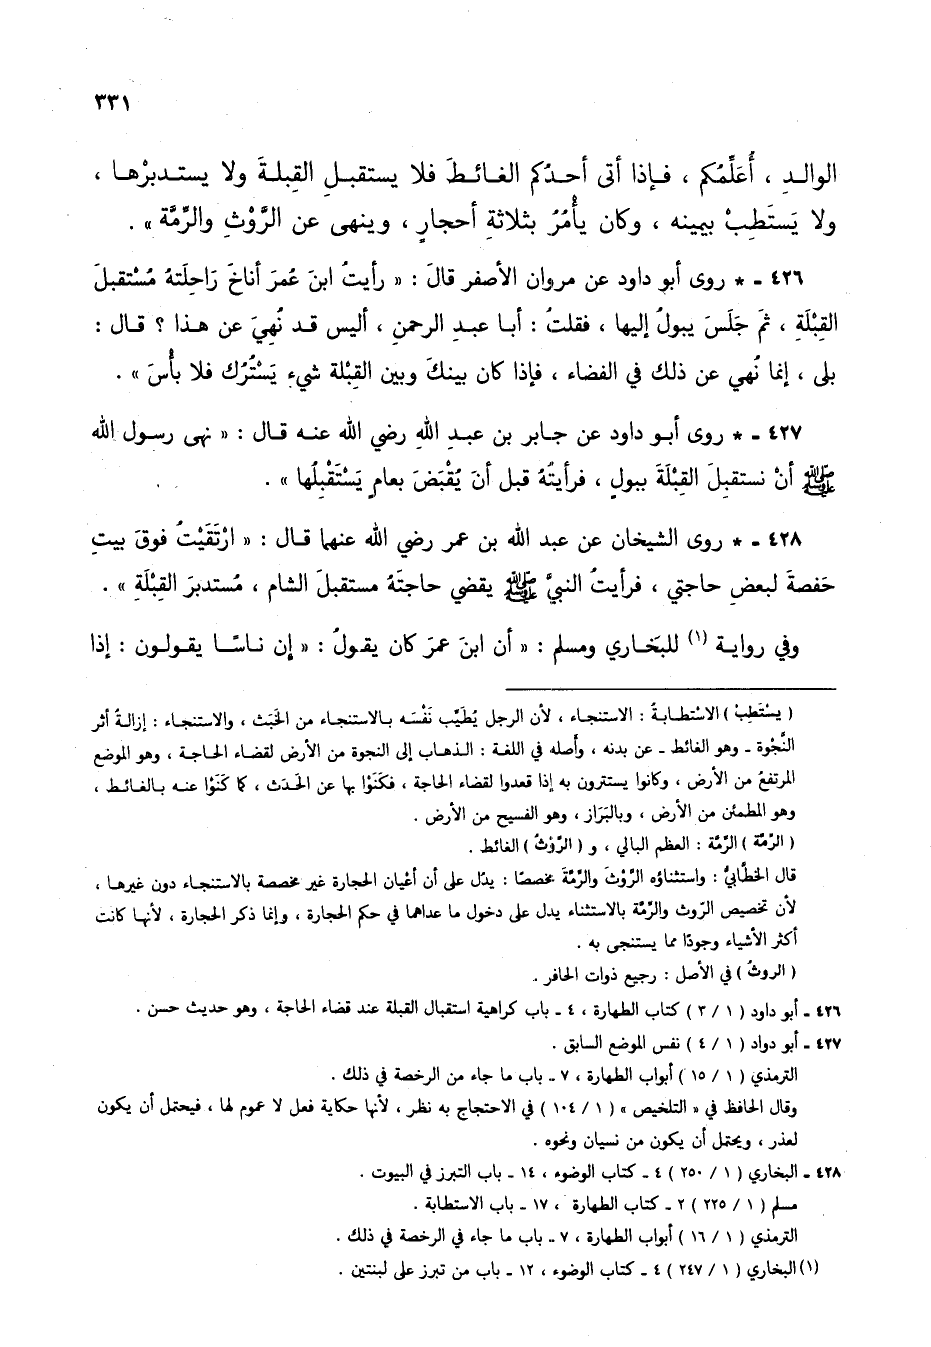 ٣٣١
الوالـدِ ، أُعَلِّمُكم ، فـإذا أتى أحـدُكم الغـائـطَ فلا يستقبـلِ القِبلـةَ ولا يستـدبرْهـا ،
ولا يَستَطِبْ بيمينه ، وكان يأْمُرُ بثلاثةِ أحجارٍ ، وينهى عن الرَّوْثِ والرِّمَّة » .
٤٢٦ - * روى أبو داود عن مروان الأصفر قالَ : « رأيتُ ابنَ عُمرَ أناخَ رَاحِلَتهُ مُسْتقبلَ
القِبْلَةِ ، ثمَ جَلَسَ يبولُ إليها ، فقلتُ : أبـا عبـدِ الرحمنِ ، أليس قـد نُهِيَ عن هـذا ؟ قـال :
بلى ، إنما نُهي عن ذلك في الفضاء ، فإذا كان بينكَ وبين القِبْلة شيءٌ يَسْتُرُك فلا بأْسَ » .
٤٢٧ - * روى أبـو داود عن جـابر بن عبـدِ اللهِ رضي الله عنـه قـال : « نهى رسـول الله
ﷺ أنْ نستقبلَ القِبْلَةَ ببولٍ ، فرأيتُهُ قبل أنَ يُقْبَضَ بعامٍ يَسْتَقْبِلُها » .
٤٢٨ - * روى الشيخان عن عبد الله بن عمر رضي الله عنهما قـال : « ارْتَقَيْتُ فوقَ بيتِ
حَفصةَ لبعضِ حاجتي ، فرأيتُ النبيَّ ﷺ يقضي حاجتَهُ مستقبلَ الشام ، مُستدبرَ القِبْلَةِ » .
وفي روايـة (١) للبَخـاري ومسلم : « أن ابنَ عمرَ كان يقولُ : « إن نـاسًـا يقـولـون : إذا
( يستَطِبْ ) الاسْتِطـابـةُ : الاستنجـاء ، لأن الرجل يُطَيِّب نَفْسَـه بـالاستنجـاء من الخَبَث ، والاستنجـاء : إزالـةُ أثر
النَّجْوة - وهو الغائط - عن بدنه ، وأصله في اللغة : الـذهـاب إلى النجوة من الأرض لقضـاء الحـاجـة ، وهو الموضع
المرتفعُ من الأرض ، وكانوا يستترون به إذا قعدوا لقضاء الحاجة ، فكَنَوْا بها عن الحَدَث ، كما كَنَوْا عنـه بـالغـائـط ،
وهو المطمئن من الأرض ، وبالبَرَاز ، وهو الفسيح من الأرض .
( الرِّمّة ) الرِّمّة : العظم البالي ، و ( الرَّوْثُ ) الغائط .
قال الخطَّابيُّ : واستثناؤه الرّوْثَ والرِّمَّةَ مخصصًا : يدّل على أن أعْيان الحجارة غير مخصصة بالاستنجاء دون غيرهـا ،
لأن تخصيص الرّوث والرِّمّة بالاستثناء يدل على دخول ما عداهما في حكم الحجارة ، وإنما ذكر الحجارة ، لأنهـا كانت
أكثر الأشياء وجودًا مما يستنجى به .
( الروثُ ) في الأصل : رجيع ذوات الحافر .
٤٢٦ - أبو داود ( ١ / ٣ ) كتاب الطهارة ، ٤ - باب كراهية استقبال القبلة عند قضاء الحاجة ، وهو حديث حسن .
٤٢٧ - أبو دواد ( ١ / ٤ ) نفس الموضع السابق .
الترمذي ( ١ / ١٥ ) أبواب الطهارة ، ٧ - باب ما جاء من الرخصة في ذلك .
وقال الحافظ في « التلخيص » ( ١ / ١٠٤ ) في الاحتجاج به نظر ، لأنها حكاية فعل لا عموم لها ، فيحتمل أن يكون
لعذر ، ويحتمل أن يكون من نسيان ونحوه .
٤٢٨ - البخاري ( ١ / ٢٥٠ ) ٤ - كتاب الوضوء ، ١٤ - باب التبرز في البيوت .
مسلم ( ١ / ٢٢٥ ) ٢ - كتاب الطهارة ، ١٧ - باب الاستطابة .
الترمذي ( ١ / ١٦ ) أبواب الطهارة ، ٧ - باب ما جاء في الرخصة في ذلك .
(١) البخاري ( ١ / ٢٤٧ ) ٤ - كتاب الوضوء ، ١٢ - باب من تبرز على لبنتين .